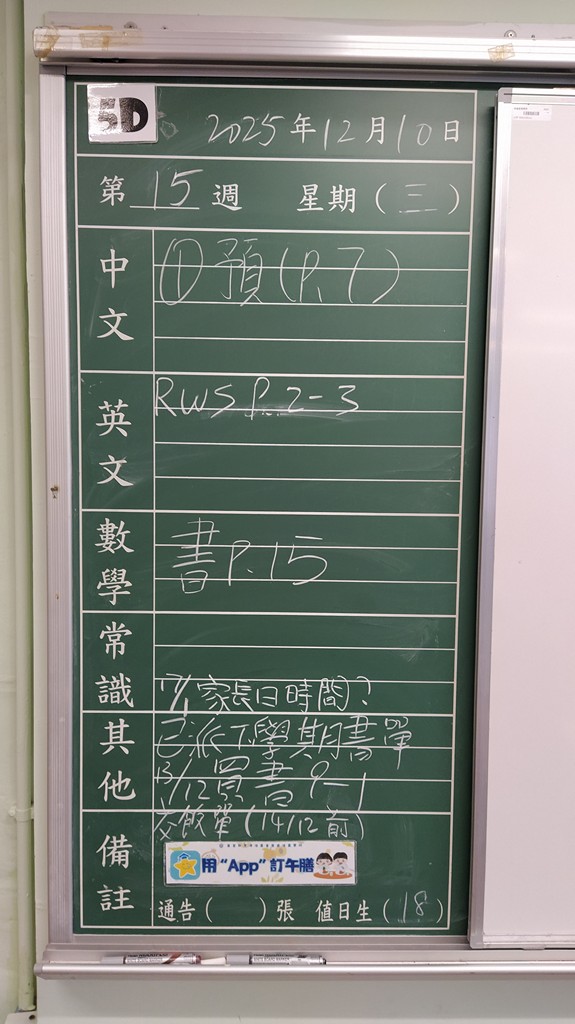 5D
2025年12月10日
第15週 星期(三)
中文
①預(P.7)
英文
RWS P.2-3
數學
書P.15
常識
17/1家長日時間?
其他
已派下學期書單
13/12買書9-1
備註
交飯單(14/12前)
用“App”訂午膳
通告( )張 值日生(18)